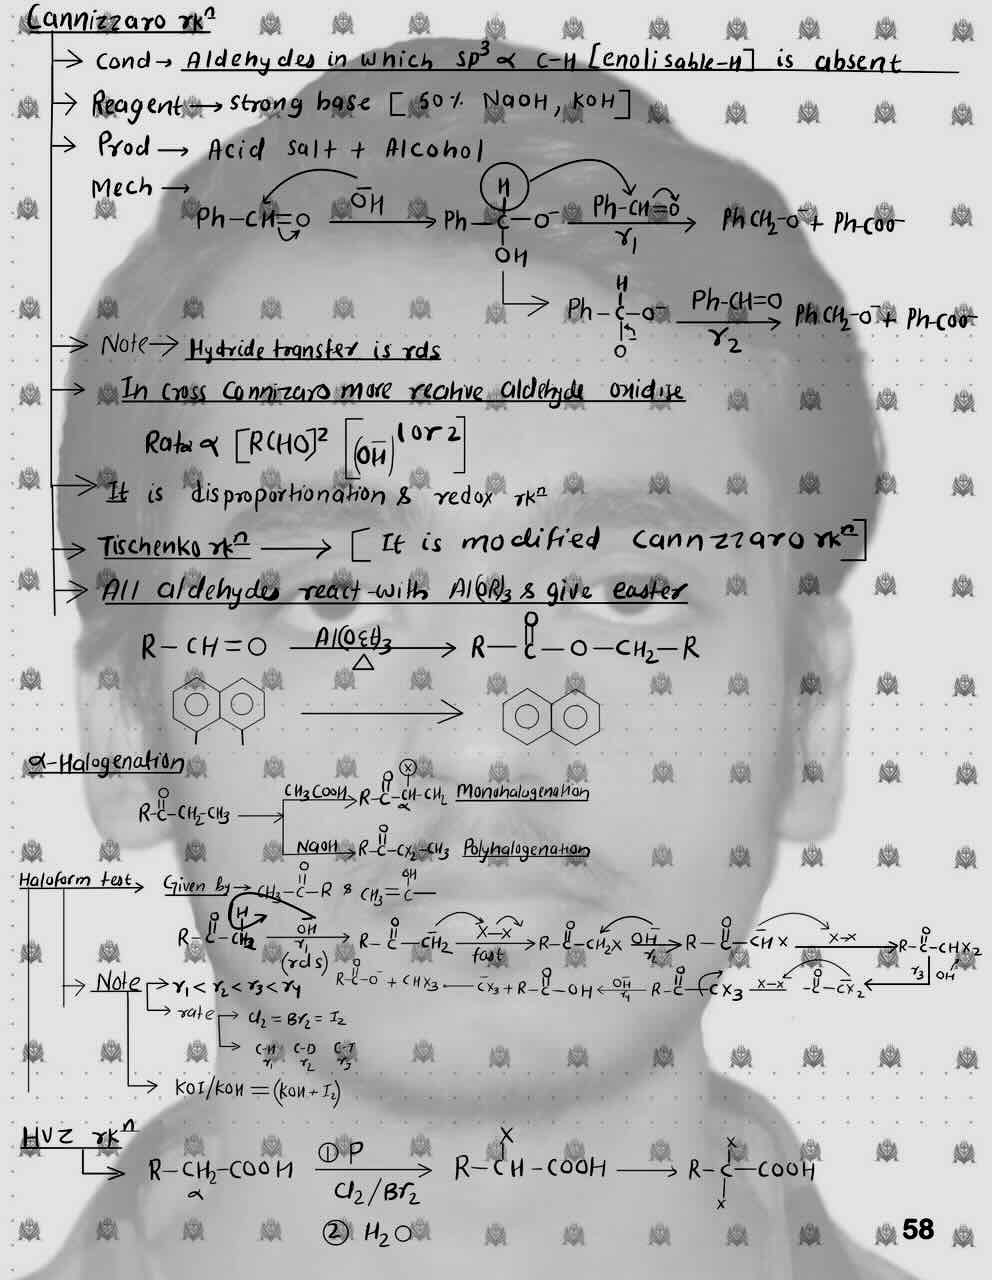 Cannizzaro rkⁿ
→ Cond → Aldehydes in which sp³ α C-H [enolisable-H] is absent
→ Reagent → strong base [50% NaOH, KOH]
→ Prod → Acid salt + Alcohol
Mech →
Ph-CH=O —ŌH→ Ph-C(H)(OH)-O⁻ —Ph-CH=O, r₁→ PhCH₂-O⁻ + Ph-COO⁻
Ph-C(H)(O⁻)-O⁻ —Ph-CH=O, r₂→ PhCH₂-O⁻ + Ph-COO⁻
→ Note → Hydride transfer is rds
→ In cross Cannizaro more reactive aldehyde oxidise
Rate α [RCHO]² [(ŌH)^1 or 2]
→ It is disproportionation & redox rkⁿ
→ Tischenko rkⁿ → [It is modified cannzzaro rkⁿ]
→ All aldehydes react with Al(OR)₃ & give easter
R-CH=O —Al(OEt)₃, △→ R-C(=O)-O-CH₂-R
α-Halogenation
R-C(=O)-CH₂-CH₃ →
CH₃COOH → R-C(=O)-CH(X)-CH₂ Monohalogenation
α
NaOH → R-C(=O)-CX₂-CH₃ Polyhalogenation
Haloform test → Given by → CH₃-C(=O)-R & CH₃=C(OH)-
R-C(=O)-CH₂(H) —ŌH, r₁ (rds)→ R-C(=O)-C̄H₂ —X-X, fast→ R-C(=O)-CH₂X —ŌH, r₂→ R-C(=O)-C̄HX —X-X→ R-C(=O)-CHX₂
R-C(=O)-O⁻ + CHX₃ ← C̄X₃ + R-C(=O)-OH ←ŌH, r₄— R-C(=O)-CX₃ ←X-X— -C(=O)-C̄X₂ ←r₃, ŌH
→ Note → r₁ < r₂ < r₃ < r₄
→ rate → Cl₂ = Br₂ = I₂
→ C-H C-D C-T
r₁ r₂ r₃
→ KOI/KOH = (KOH + I₂)
HVZ rkⁿ
→ R-CH₂-COOH —① P, Cl₂/Br₂→ R-CH(X)-COOH → R-C(X)(X)-COOH
α
② H₂O
58